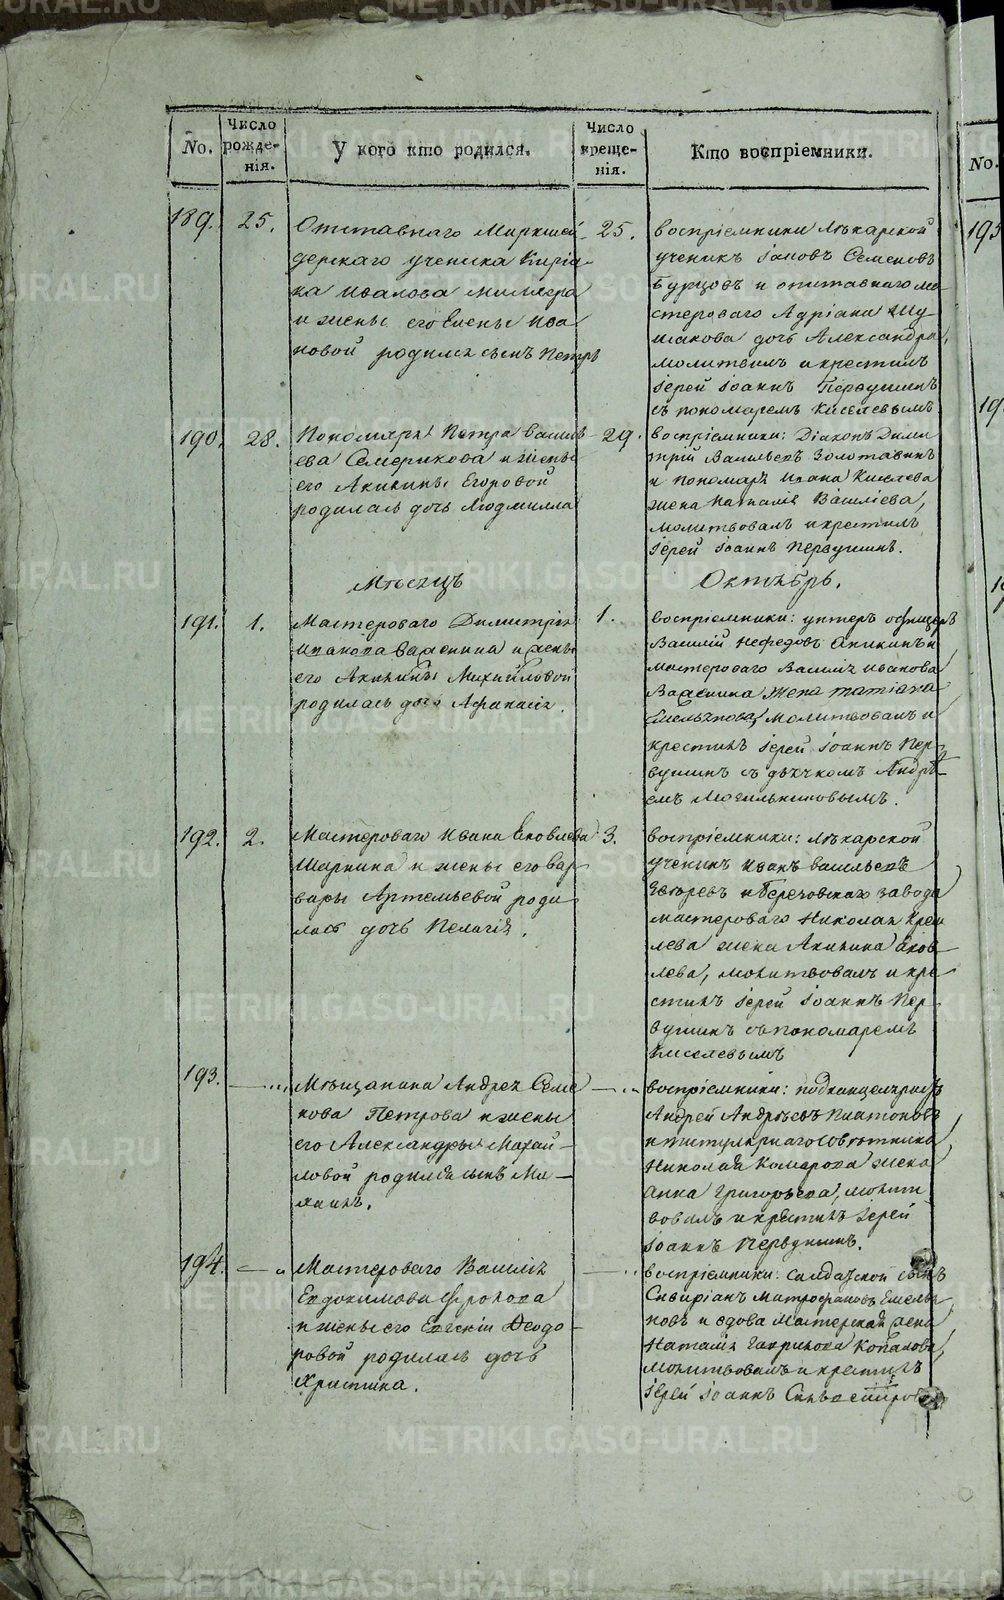 No.
Число рожде-нія.
У кого кто родился.
Число креще-нія.
Кто воспріемники.
No.
189.
25.
Отставнаго Маркшей
дерскаго ученика Киріа-
ка Иванова Миллера
и жены его Елены Ива
новой родился сынъ Петръ
25.
воспріемники Лѣкарской
ученикъ Семеновъ
Бурцовъ и отставнаго ма-
стероваго Адріана Шу-
макова дочь Александра,
молитвилъ и крестилъ
іерей Іоаннъ Первушинъ
съ пономаремъ Киселевымъ
190.
28.
Пономаря Петра Василь
ева Семерикова и жены
его Акилины Егоровой
родилась дочь Людмилла
29.
воспріемники: Діаконъ Дими
трій Васильевъ Золотавинъ
и пономаря Ивана Киселева
жена Наталія Василіева,
молитвовалъ и крестилъ
іерей Іоаннъ Первушинъ.
Мѣсяцъ
Октябрь.
191.
1.
Мастероваго Димитрія
Иванова и жены
его Акилины Михайловой
родилась дочь Афанасія.
1.
воспріемники: унтеръ офицеръ
Василій Нефедовъ Аникинъ и
мастероваго Василія Иванова
жена Татіана
Емельянова, молитвовалъ и
крестилъ іерей Іоаннъ Пер-
вушинъ съ дьячкомъ Андрѣ-
емъ Могильниковымъ.
192.
2.
Мастероваго Ивана Яковлева
Шаркина и жены его Вар
вары Артемьевой роди
лась дочь Пелагія.
3.
воспріемники: Лѣкарской
ученикъ Иванъ Васильевъ
и Березовскаго завода
мастероваго Николая
лева жена Акилина Яков-
лева, молитвовалъ и кре
стилъ іерей Іоаннъ Пер-
вушинъ съ пономаремъ
Киселевымъ
193.
Мѣщанина Андрея Семе
нова Петрова и жены
его Александры Михай-
ловой родился сынъ Ми-
хаилъ.
воспріемники: подканцеляристъ
Андрей Андрѣевъ Платоновъ
и титулярнаго совѣтника
Николая Комарова жена
Анна Григорьева, молит
вовалъ и крестилъ іерей
Іоаннъ Первушинъ.
194.
Мастероваго Василія
Евдокимова Фролова
и жены его Евгеніи Ѳеодо-
ровой родилась дочь
Христина.
воспріемники: салдатской сынъ
Митрофановъ Емелья
новъ и вдова мастерская жена
Наталія Гаврилова
молитвовалъ и крестилъ
іерей Іоаннъ
METRIKI.GASO-URAL.RU